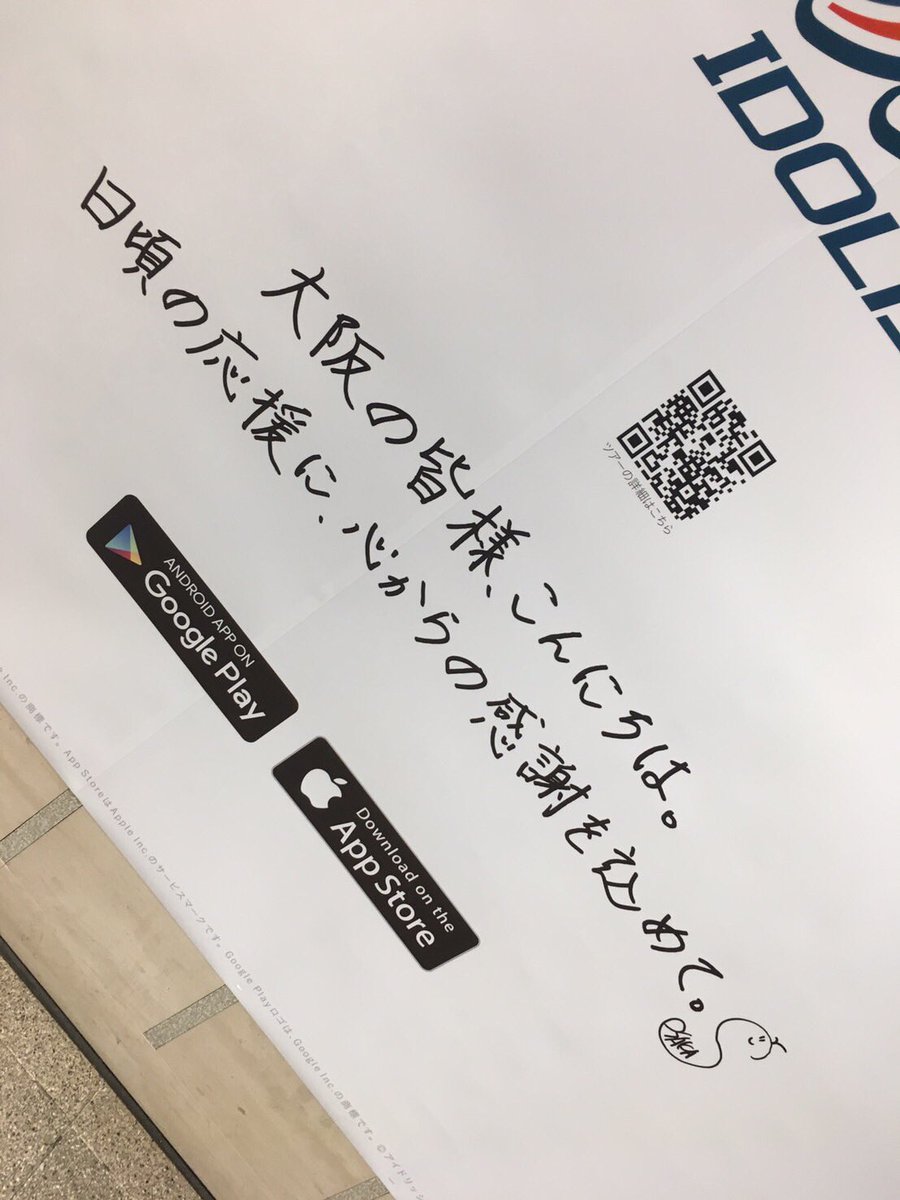 IDOLI
ツアーの詳細はこちら
大阪の皆様、こんにちは。
日頃の応援に、心からの感謝を込めて。
OSAKA
ANDROID APP ON
Google Play
Download on the
App Store
Inc.の商標です。App StoreはApple Inc.のサービスマークです。Google Playロゴは、Google Inc.の商標です。©アイドリッシ